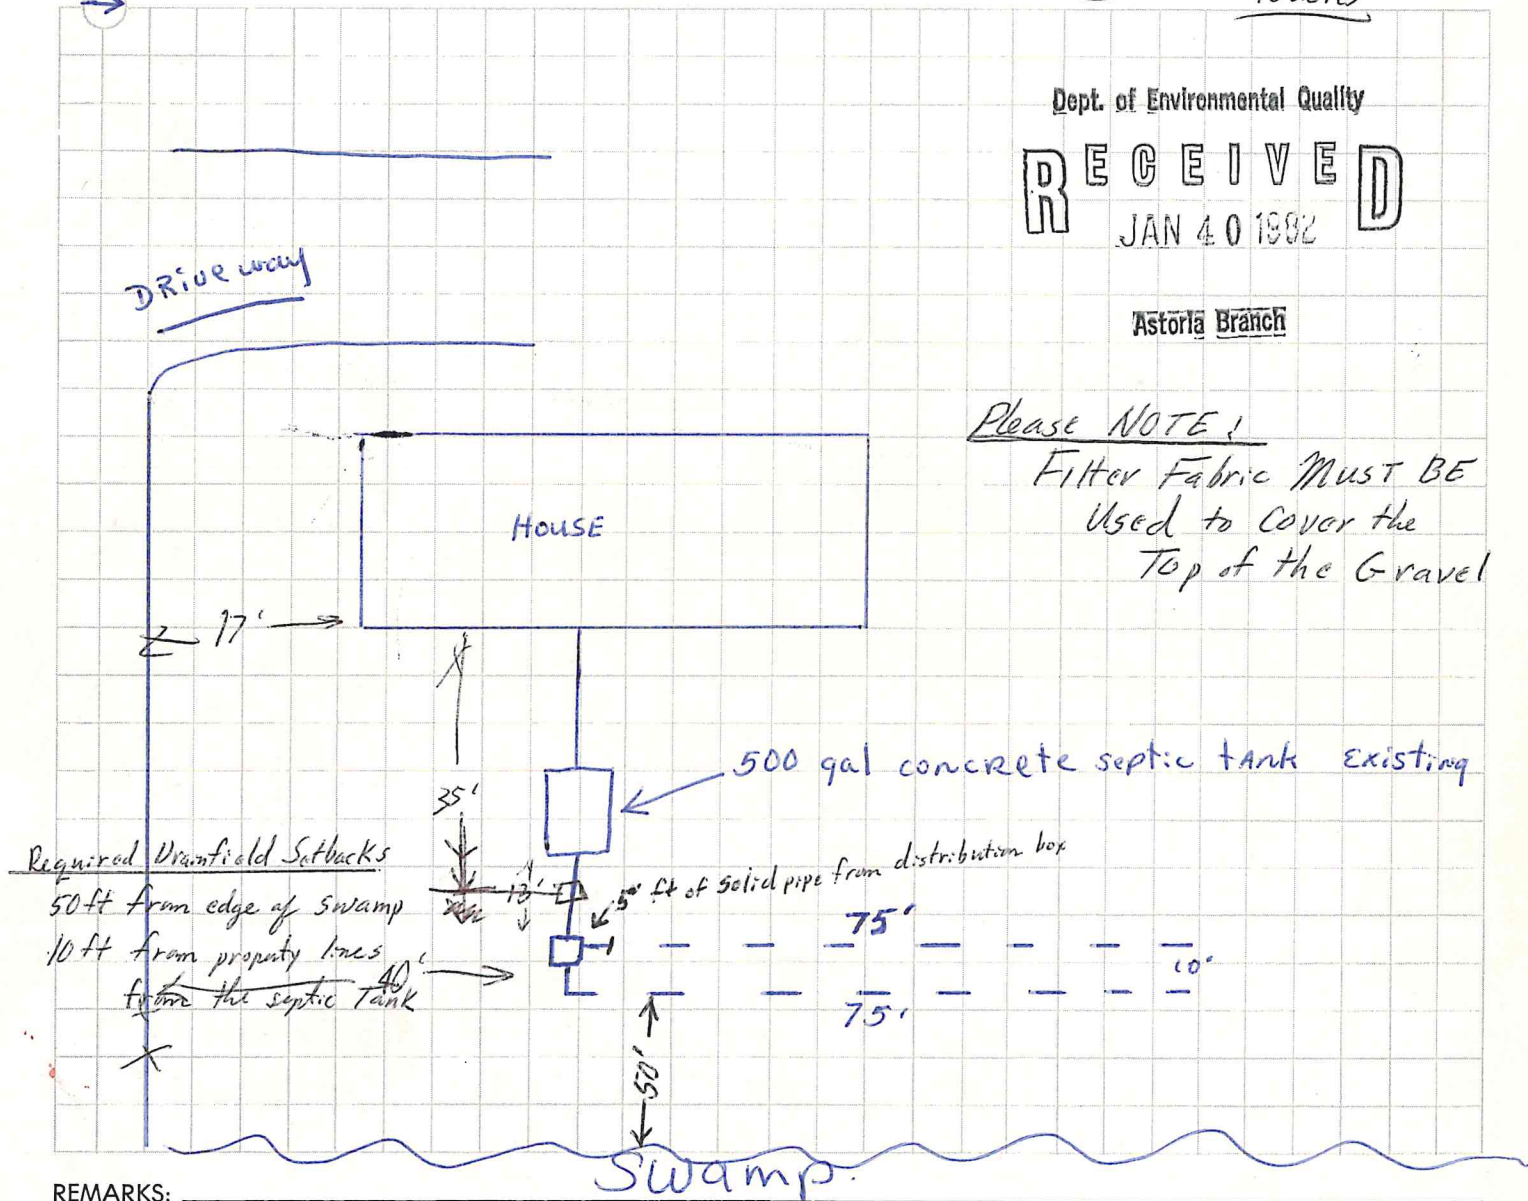 Dept. of Environmental Quality
RECEIVED
JAN 40 1992
Astoria Branch
DRiveway
Please NOTE!
Filter Fabric MUST BE
Used to Cover the
Top of the Gravel
HOUSE
17'
500 gal concrete septic tank Existing
35'
Required Drainfield Setbacks
50 ft from edge of swamp
10 ft from property lines
from the septic Tank
13'
5' ft of Solid pipe from distribution box
75'
10'
40'
75'
50'
Swamp.
REMARKS: